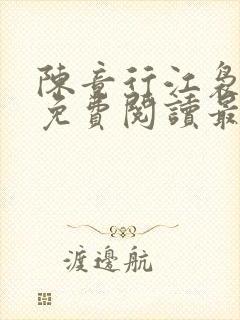 陳音行江裊
免費閱讀最
渡邊航